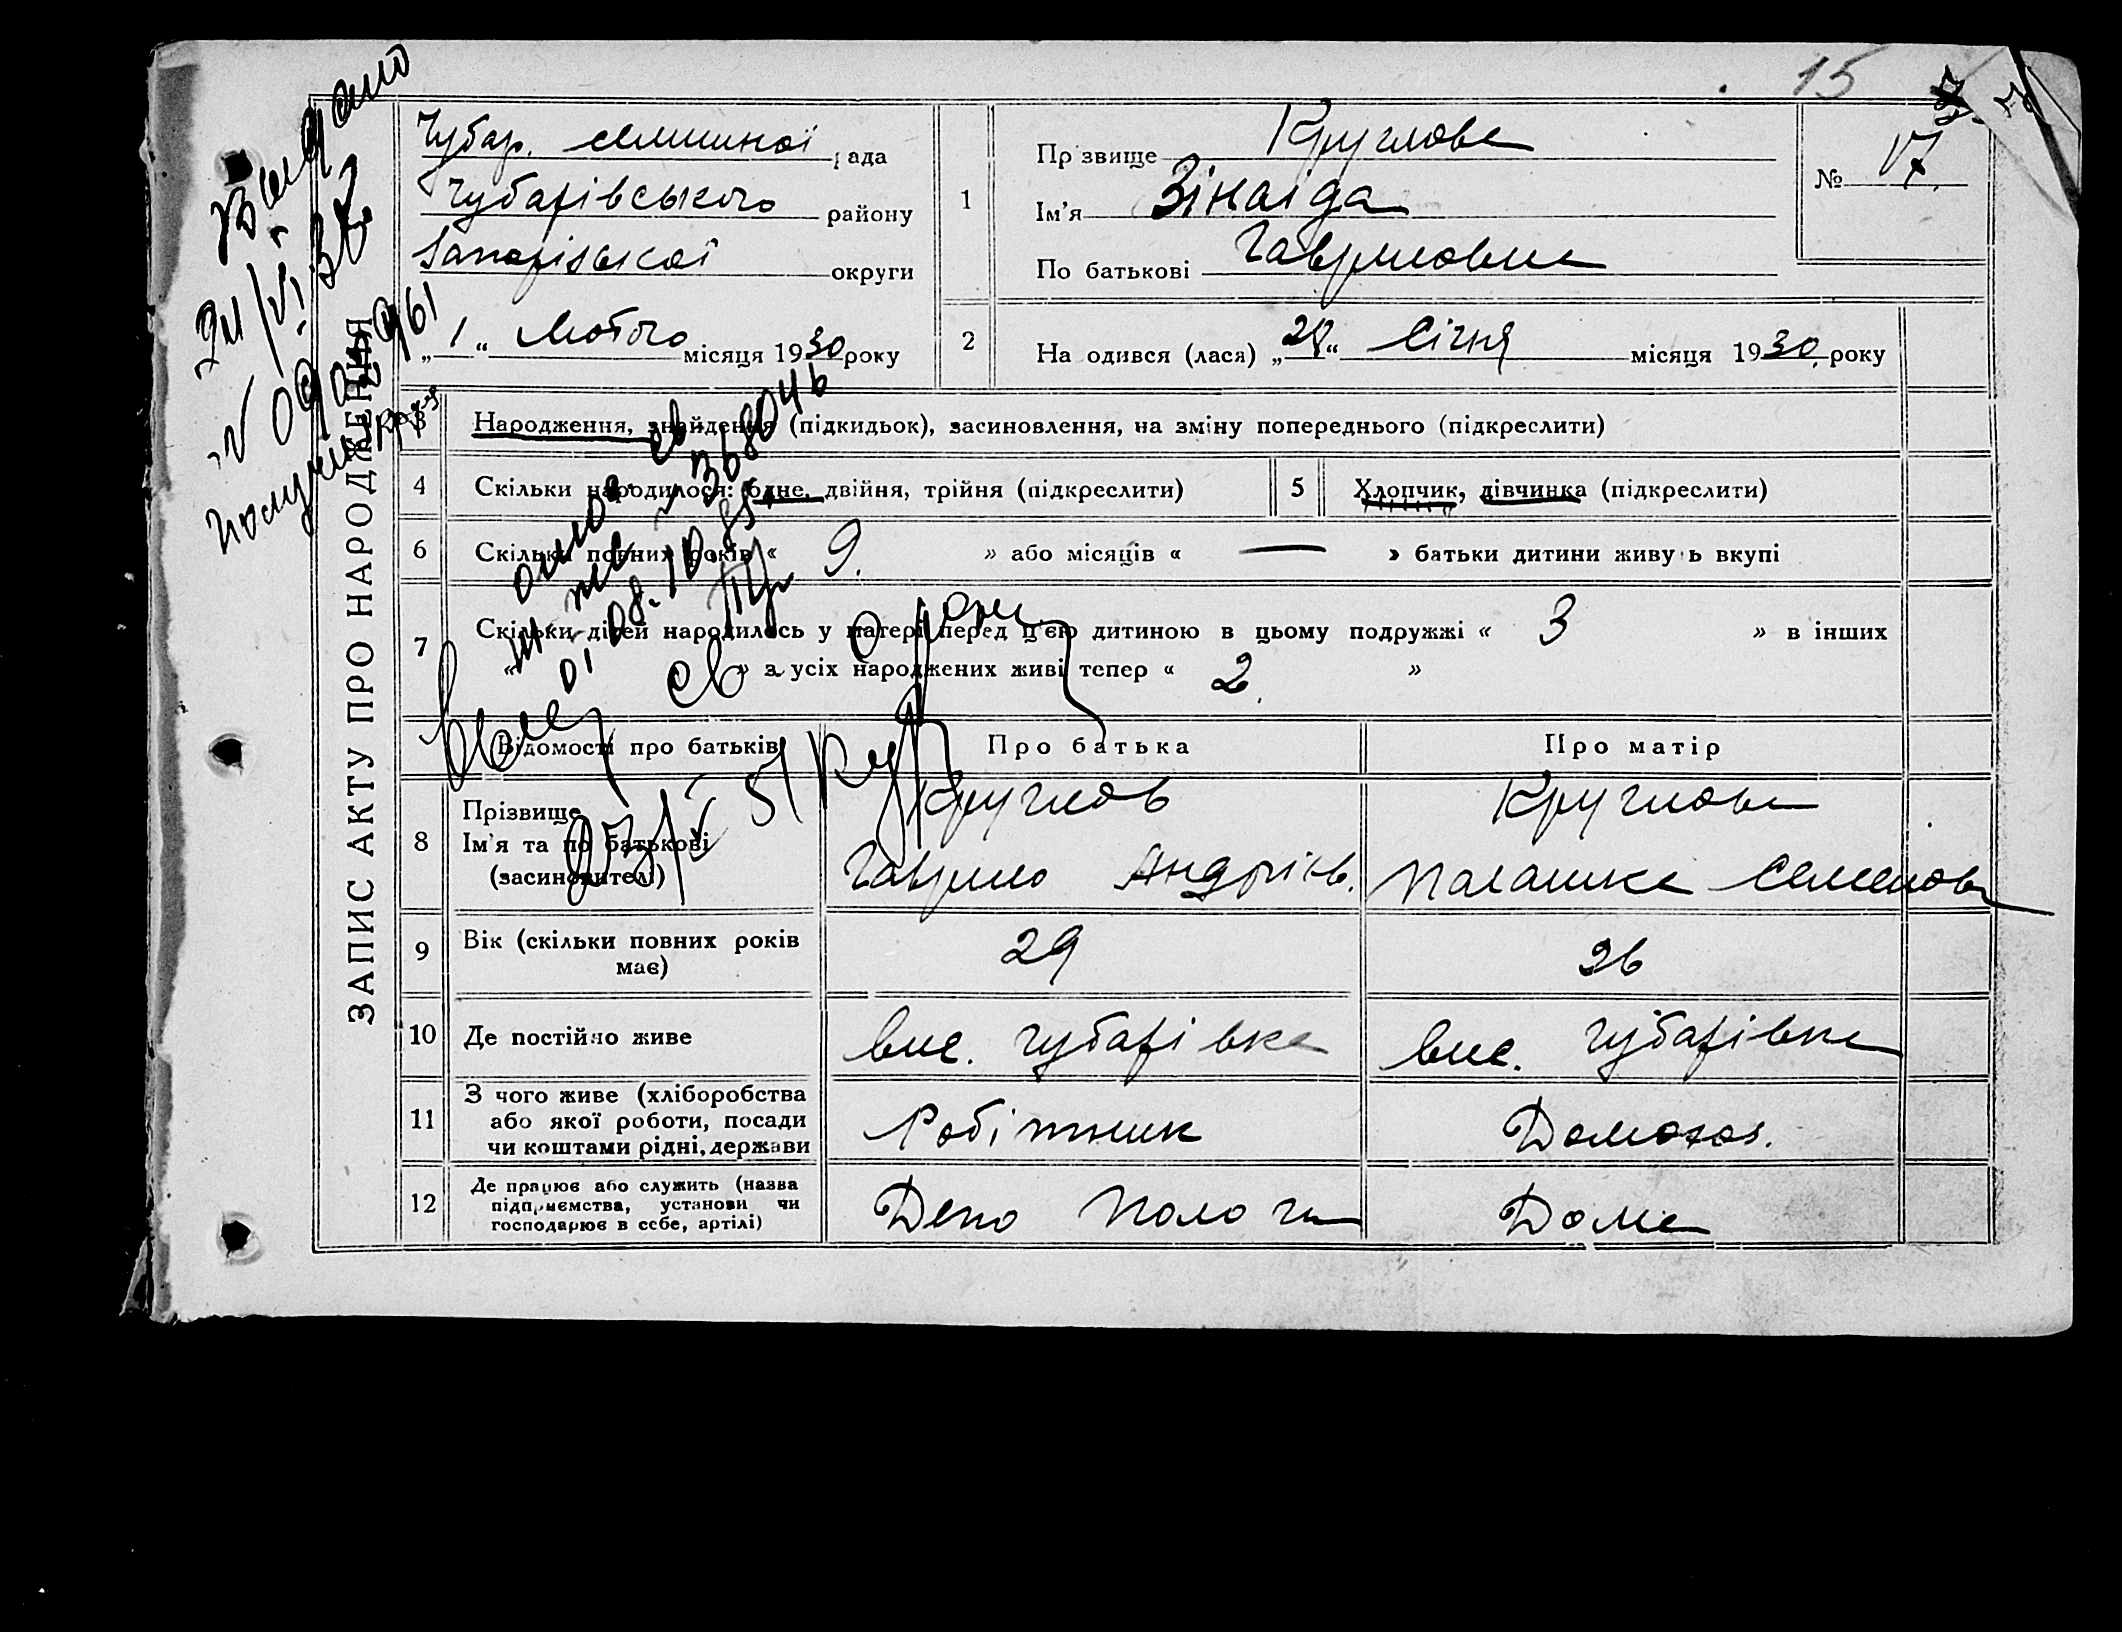 15
ЗАПИС АКТУ ПРО НАРОДЖЕННЯ
Чубар. селишної рада
Чубарівського району
Запорізької округи
„1“ Лютого місяця 1930 року
1
Прізвище Круглова
Ім'я Зінаіда
По батькові Гавриловна
№ 17.
2
На одився (лася) „28“ Січня місяця 1930 року
3 Народження, знайдення (підкидьок), засиновлення, на зміну попереднього (підкреслити)
4 Скільки народилося: одне, двійня, трійня (підкреслити)
5 Хлопчик, дівчинка (підкреслити)
6 Скільки повних років « 9. » або місяців « — » батьки дитини живуть вкупі
7 Скільки дітей народилось у матері перед цією дитиною в цьому подружжі « 3 » в інших
« » з усіх народжених живі тепер « 2. »
Відомості про батьків Про батька Про матір
8 Прізвище Круглов Круглова
Ім'я та по батькові Гаврило Андріїв. Палашка Семенов
(засиновителі)
9 Вік (скільки повних років має) 29 26
10 Де постійно живе вис. Чубарівка вис. Чубарівка
11 З чого живе (хліборобства
або якої роботи, посади
чи коштами рідні, держави Робітник Домогос.
12 Де працює або служить (назва
підприємства, установи чи
господарює в себе, артілі) Депо Пологи Дома
Выдано
№ 368046
01.08.1085